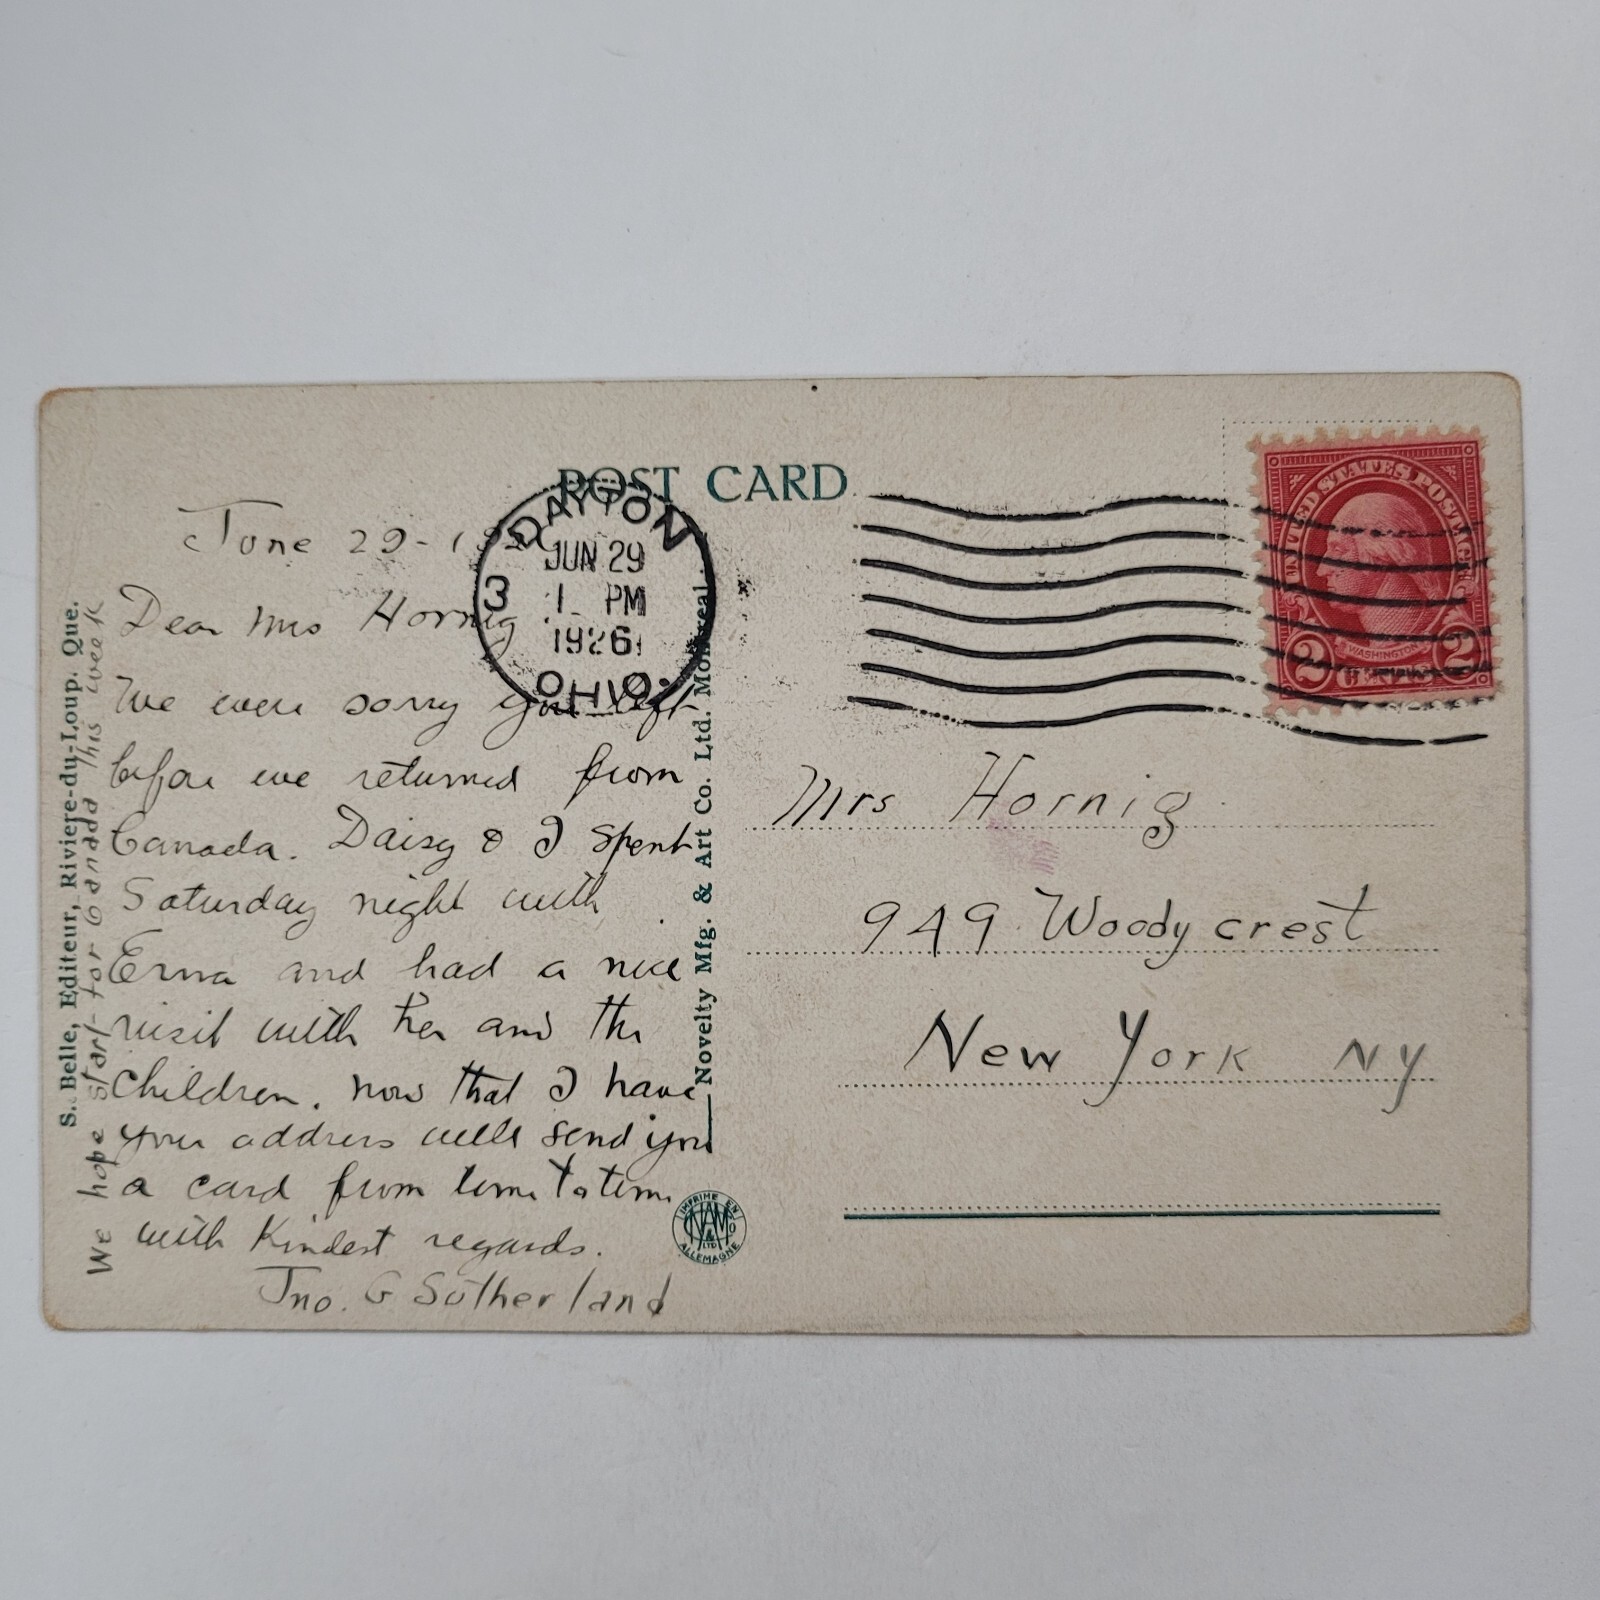 POST CARD
DAYTON
JUN 29
1 PM
1926
3
OHIO.
UNITED STATES POSTAGE
WASHINGTON
2 CENTS 2
June 29-192
Dear Mrs Hornig
We were sorry you left
before we returned from
Canada. Daisy & I spent
Saturday night with
Erma and had a nice
visit with her and the
children. now that I have
your address will send you
a card from time to time
with Kindest regards.
Jno. G Sutherland
We hope start for Canada this week
S. Belle, Editeur, Rivière-du-Loup. Que.
Novelty Mfg. & Art Co. Ltd. Montreal.
IMPRIMÉ EN
NAM Co
& LTD
ALLEMAGNE
Mrs Hornig
949 Woodycrest
New York NY